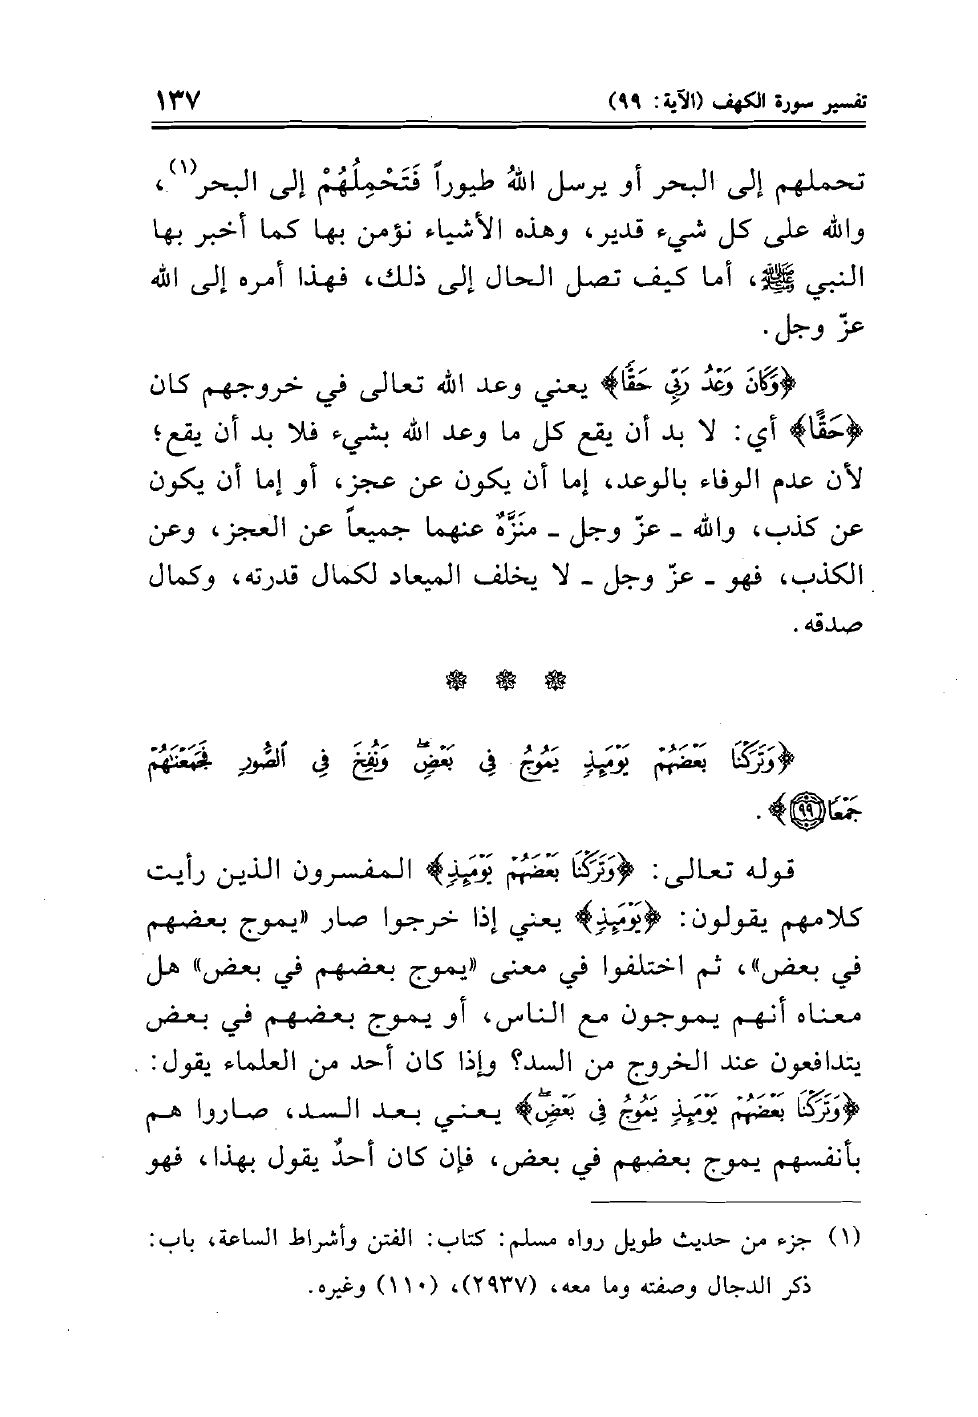 تفسير سورة الكهف (الآية: ٩٩) ١٣٧
تحملهم إلى البحر أو يرسل اللهُ طيوراً فَتَحْمِلُهُمْ إلى البحر(١)،
والله على كل شيء قدير، وهذه الأشياء نؤمن بها كما أخبر بها
النبي ﷺ، أما كيف تصل الحال إلى ذلك، فهذا أمره إلى الله
عزّ وجل.
﴿وَكَانَ وَعْدُ رَبِّي حَقًّا﴾ يعني وعد الله تعالى في خروجهم كان
﴿حَقًّا﴾ أي: لا بد أن يقع كل ما وعد الله بشيء فلا بد أن يقع؛
لأن عدم الوفاء بالوعد، إما أن يكون عن عجز، أو إما أن يكون
عن كذب، والله ـ عزّ وجل ـ منَزَّهٌ عنهما جميعاً عن العجز، وعن
الكذب، فهو ـ عزّ وجل ـ لا يخلف الميعاد لكمال قدرته، وكمال
صدقه.
﴿وَتَرَكْنَا بَعْضَهُمْ يَوْمَئِذٍ يَمُوجُ فِي بَعْضٍ ۖ وَنُفِخَ فِي ٱلصُّورِ فَجَمَعْنَٰهُمْ
جَمْعًا ٩٩﴾.
قوله تعالى: ﴿وَتَرَكْنَا بَعْضَهُمْ يَوْمَئِذٍ﴾ المفسرون الذين رأيت
كلامهم يقولون: ﴿يَوْمَئِذٍ﴾ يعني إذا خرجوا صار «يموج بعضهم
في بعض»، ثم اختلفوا في معنى «يموج بعضهم في بعض» هل
معناه أنهم يموجون مع الناس، أو يموج بعضهم في بعض
يتدافعون عند الخروج من السد؟ وإذا كان أحد من العلماء يقول:
﴿وَتَرَكْنَا بَعْضَهُمْ يَوْمَئِذٍ يَمُوجُ فِي بَعْضٍ ۖ﴾ يعني بعد السد، صاروا هم
بأنفسهم يموج بعضهم في بعض، فإن كان أحدٌ يقول بهذا، فهو
(١) جزء من حديث طويل رواه مسلم: كتاب: الفتن وأشراط الساعة، باب:
ذكر الدجال وصفته وما معه، (٢٩٣٧)، (١١٠) وغيره.